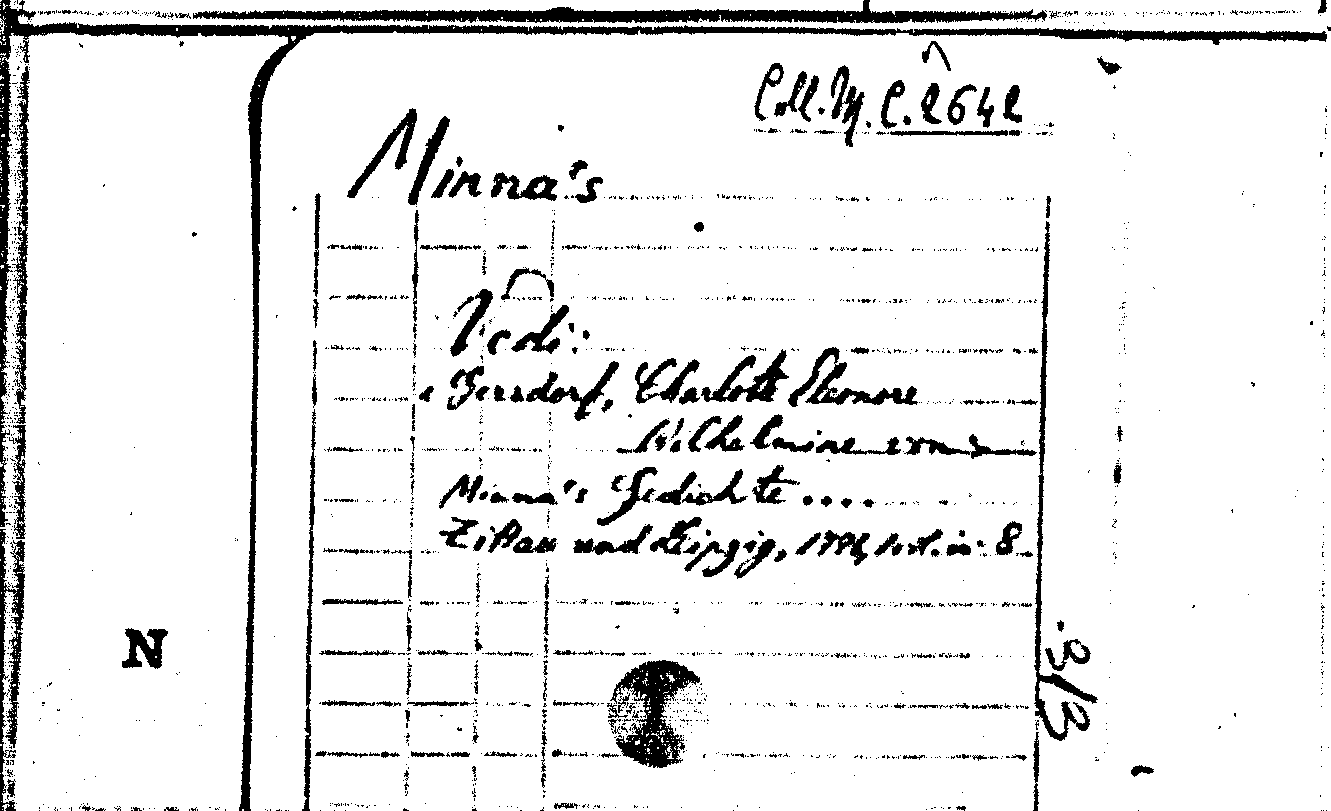 Coll. M. C. 2642
Minna's
Vedi:
Gersdorf, Charlotte Eleonore
Wilhelmine von
Minna's Gedichte ....
Zittau und Leipzig, in-8
N
3/3